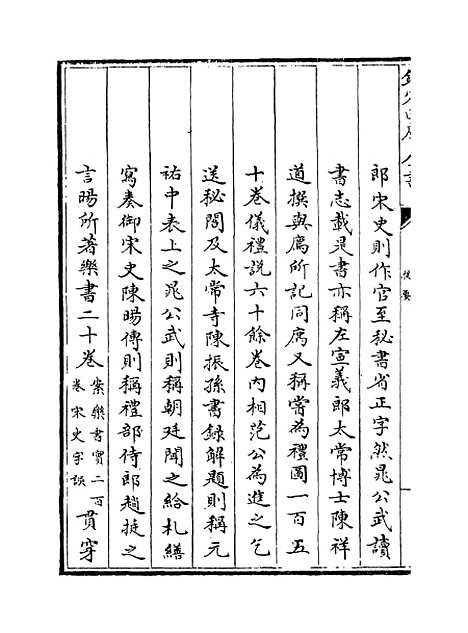 欽定四庫全書
提要
郎宋史則作官至秘書省正字然晁公武讀
書志載是書亦稱左宣義郎太常博士陳祥
道撰與廌所記同廌又稱嘗為禮圖一百五
十巻儀禮說六十餘巻内相范公為進之乞
送秘閣及太常寺陳振孫書録解題則稱元
祐中表上之晁公武則稱朝廷聞之給札繕
寫奏御宋史陳暘傳則稱禮部侍郎趙挺之
言暘所著樂書二十巻案樂書實二百巻宋史字誤貫穿